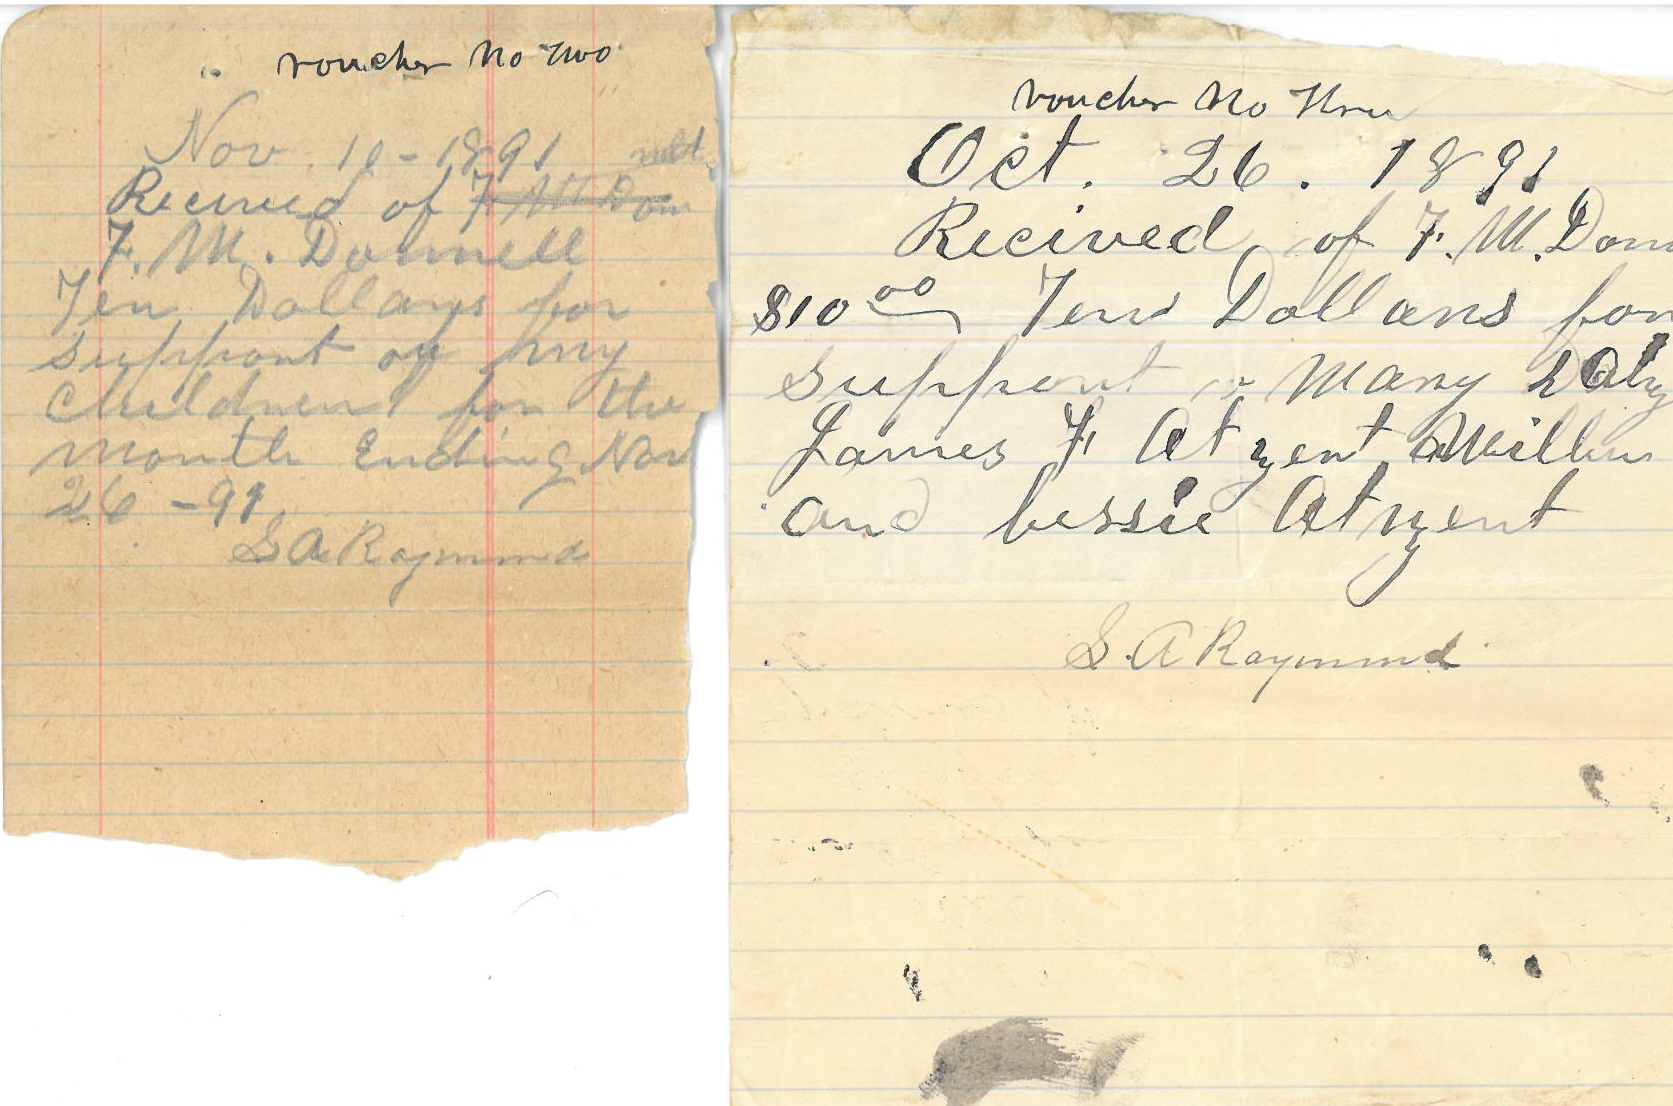 voucher No two
Nov 10-1891
Recieved of F M Don
F. M. Donnell
Ten Dollars for
support of my
Children for the
month Ending Nov
26-91
S A Raymond
voucher No Three
Oct. 26. 1891
Recived of F. M. Donn
$10 00 Ten Dollars for
support Mary
James F Atzent
and bessie Atzent
S. A Raymond